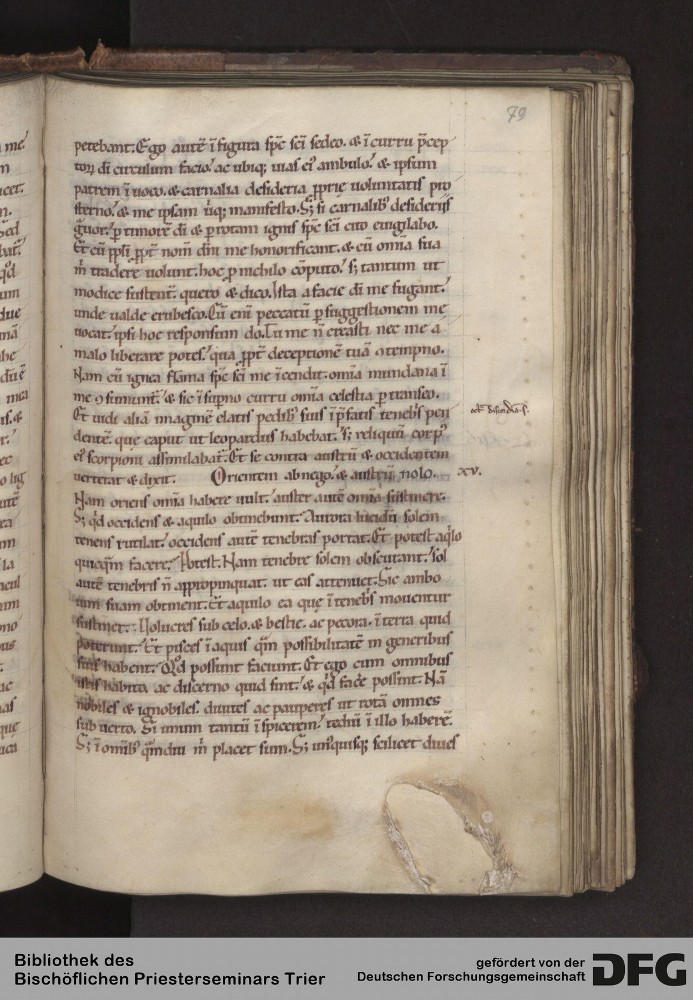 79
petebant. Ego autē ī figura spc sci sedeo. & ī curru p̄cep
toꝝ dī circulum facio. ac ubiq; uias ei' ambulo. & ipsum
patrem ī uoco. & carnalia desideria pprię uoluntatis pro
sterno. & me ipsam ūq; manifesto. S; si carnalib' desideriis
g̃uor. p timorē dī & p rotam ignis spc sci cito euigilabo.
Et cū ppli ꝓpt nom̄ dni me honorificant. & cū omīa sua
m̄ tradere uolunt. hoc p nichilo cōputo. s; tantum ut
modice sustent. quero & dico. Ista a facie dī me fugant.
unde ualde erubesco. Cū eni peccatū p suggestionem me
uocat. ipsi hoc responsum do. Tu me ñ creasti nec me a
malo liberare potes. qua ꝓpt deceptionē tuā ꝯtempno.
Nam cū ignea flāma spc sci me īcendit. omīa mundana ī
me ꝯsumunt. & sic ī supno curru omīa celestia p transeo.
Et uidi aliā imaginē elatis pedib' suis ī p̄fatis tenebs pen
dentē. que caput ut leopardus habebat. s; reliquū corp'
ei' scorpioni assimilabat. Et se contra austrū & occidentem
uerterat & dixit. Orientem abnego. & austrū nolo. xv.
Nam oriens omīa habere uult. auster autē omīa sustinere.
S; qd occidens & aquilo obtinebunt. Aurora lucidū solem
tenens rutilat. occidens autē tenebras portat. Et potest aqlo
quicqm facere. Potest. Nam tenebre solem obscurant. sol
autē tenebris ñ appropinquat. ut eas attenuet. Sic ambo
uim suam obtinent. Et aquilo ea quę ī tenebs mouentur
sustinet. Volucres sub celo. & bestie. ac pecora. ī terra quid
poterunt. Et pisces ī aquis qm possibilitatē in generibus
suis habent. Qd possunt faciunt. Et ego cum omnibus
istis habito ac discerno quid sint. & qd face possint. Nā
nobiles & ignobiles. diuites ac pauperes ut rotā omnes
sub uerto. Si unum tantū īspicerem. tediū ī illo haberē.
S; ī omīb' qmdiu m̄ placet sum. S; unusquisq; scilicet diues
Bibliothek des
Bischöflichen Priesterseminars Trier
gefördert von der
Deutschen Forschungsgemeinschaft
DFG